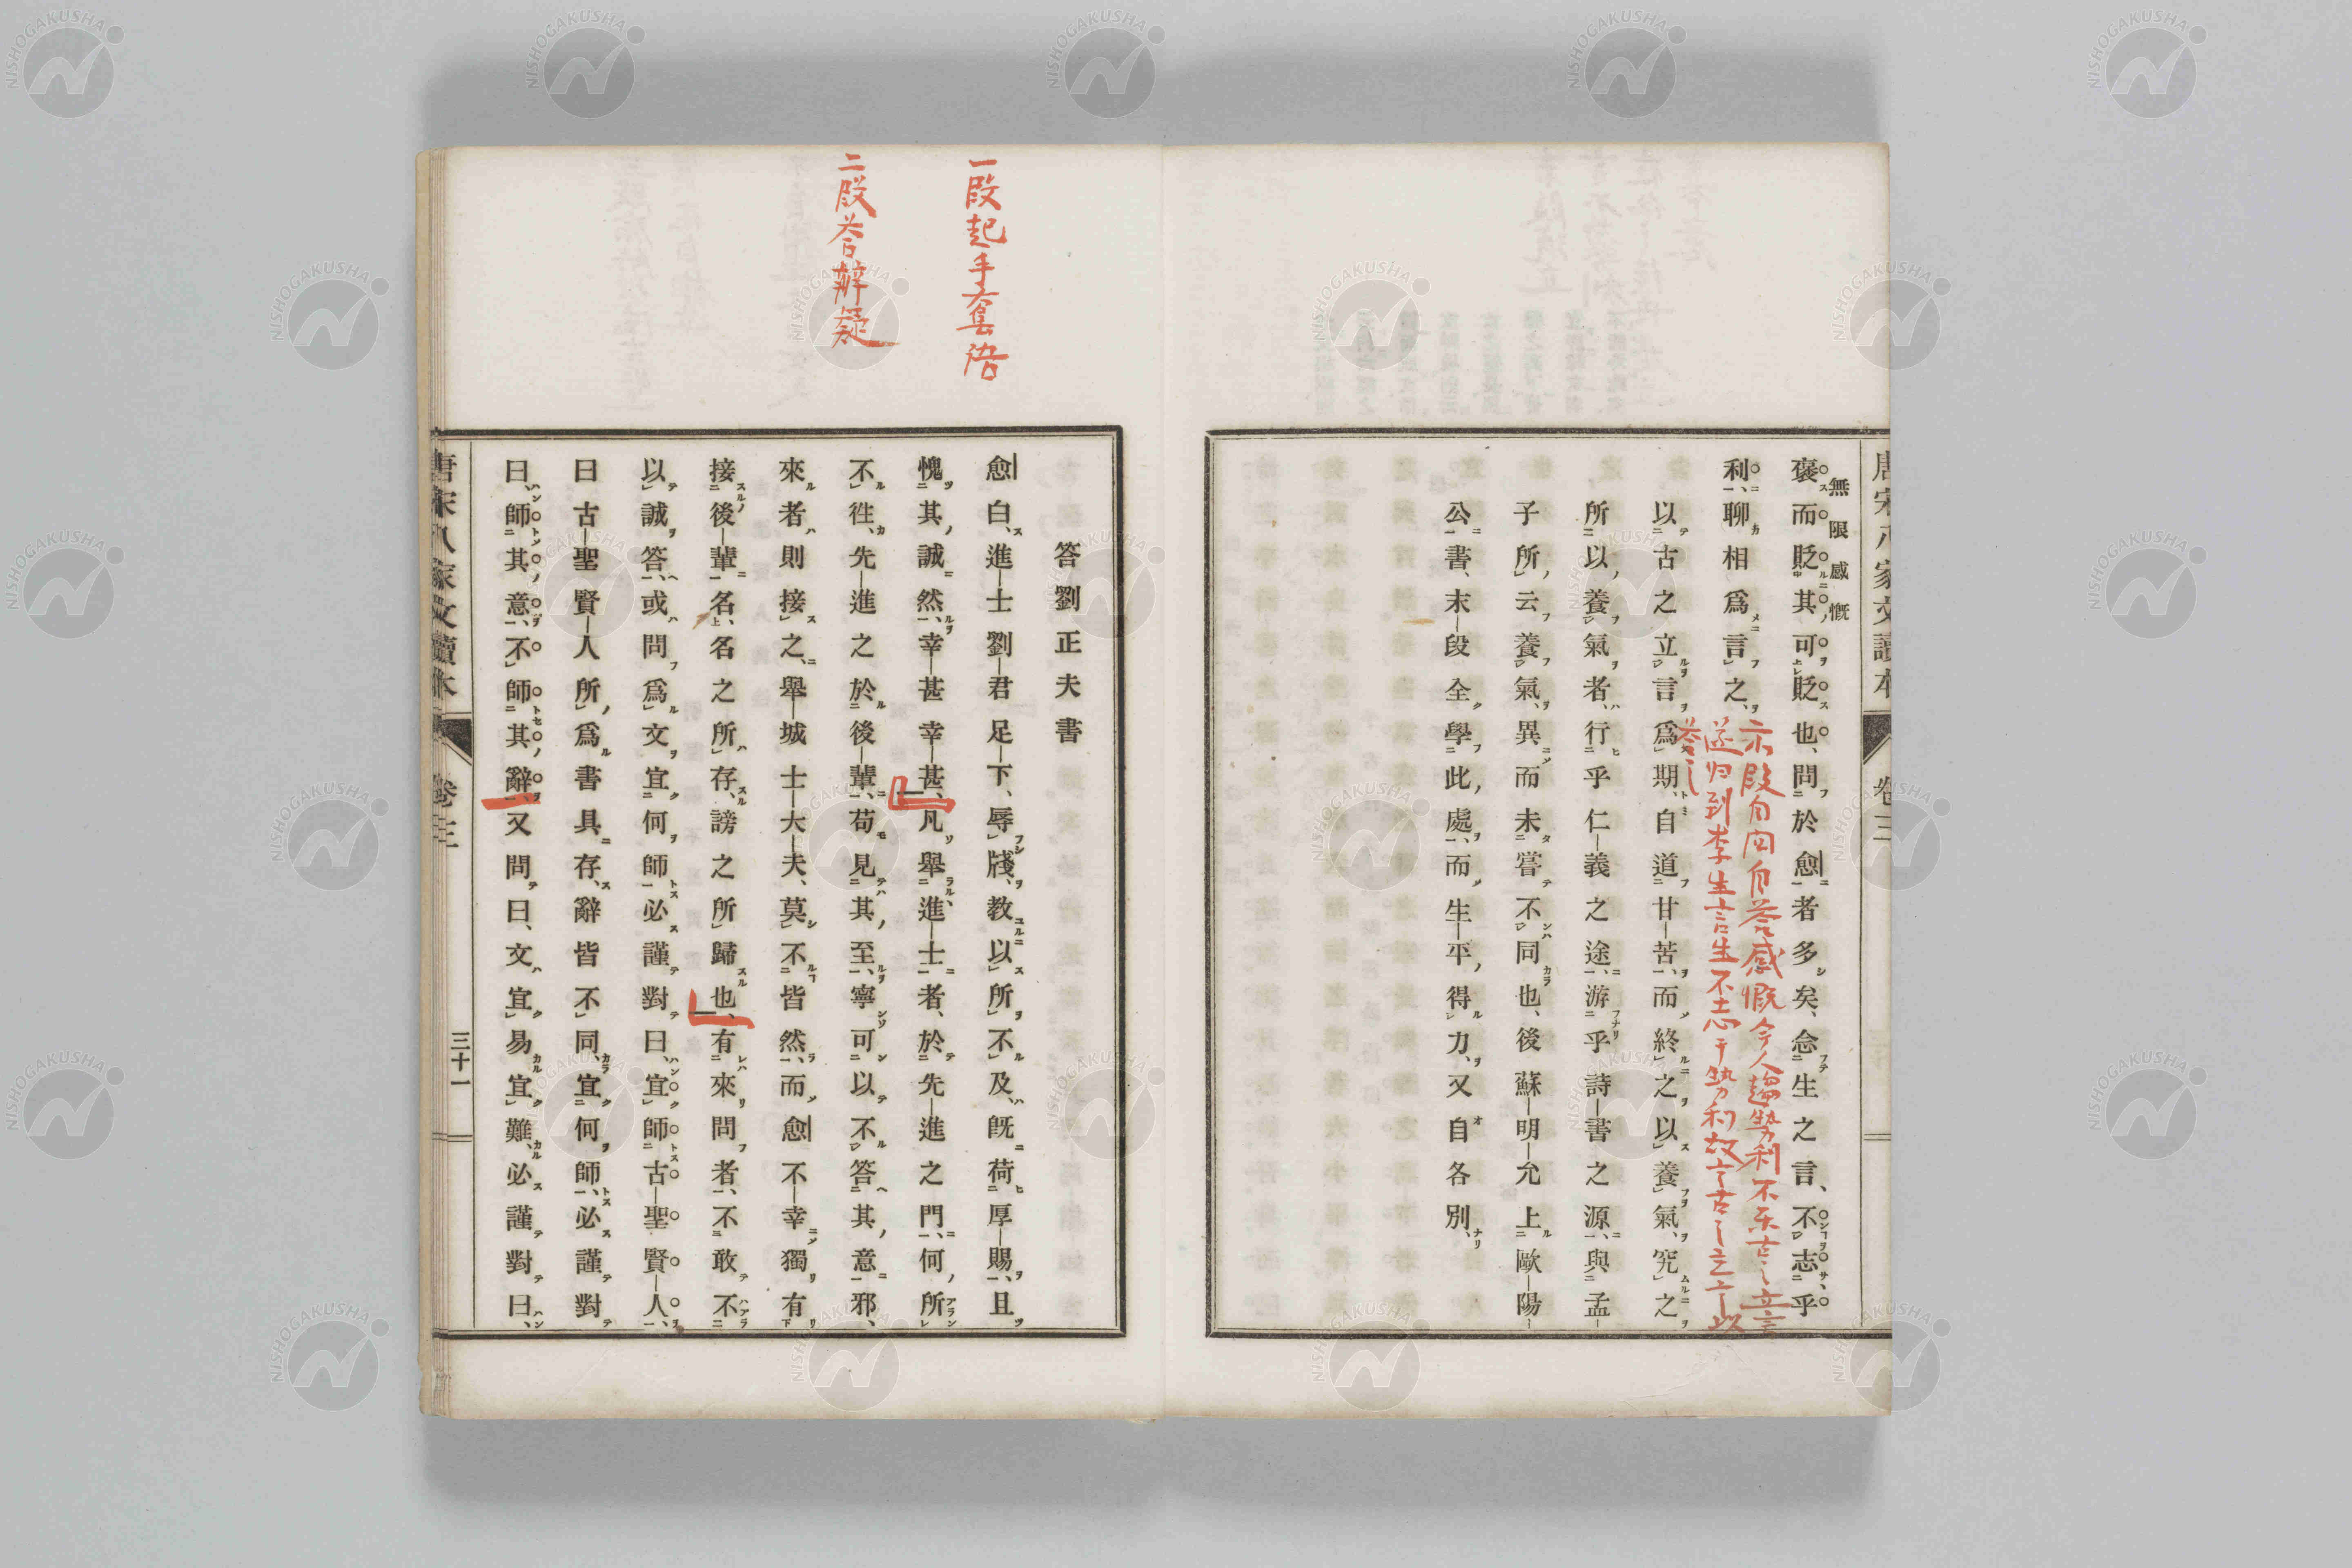 唐宋八家文讀本
卷三
無限感慨
褒而貶其可貶也、問於愈者多矣、念生之言、不志乎
利、聊相爲言之、
示段自問自答感慨今人趨勢利不示古之立言
遂归到李生言生不志于勢利故言古之立言以
答之
以古之立言爲期、自道甘苦、而終之以養氣、究之
所以養氣者、行乎仁義之途、游乎詩書之源、與孟
子所云養氣、異而未嘗不同也、後蘇明允上歐陽
公書、末段全學此處、而生平得力、又自各別、
一段起手套语
二段答辨疑
答劉正夫書
愈白、進士劉君足下、辱牋、教以所不及、既荷厚賜、且
愧其誠然、幸甚幸甚、凡舉進士者、於先進之門、何所
不往、先進之於後輩、苟見其至、寧可以不答其意邪、
來者則接之、舉城士大夫、莫不皆然、而愈不幸獨有
接後輩名、名之所存、謗之所歸也、有來問者、不敢不
以誠答、或問爲文宜何師必謹對曰、宜師古聖賢人、
曰古聖賢人所爲書具存、辭皆不同、宜何師、必謹對
曰、師其意、不師其辭、又問曰、文宜易宜難、必謹對曰、
唐宋八家文讀本
卷三
三十一
NISHOGAKUSHA